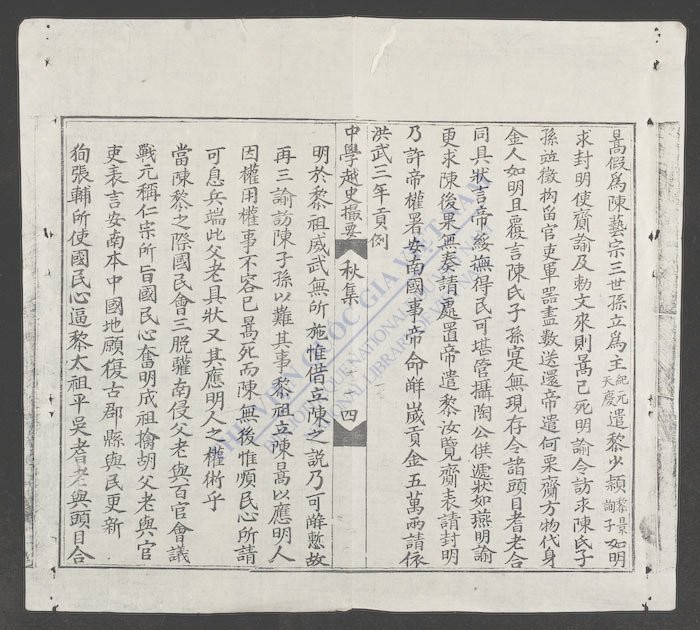 暠假爲陳藝宗三世孫立爲王紀元天慶遣黎少頴黎景詢子如明
求封明使齎諭及勅文來則暠已死明諭令訪求陳氏子
孫並徵拘留官吏軍器盡數送還帝遣何栗齎方物代身
金人如明且覆言陳氏子孫寔無現存令諸頭目耆老合
同具狀言帝綏撫得民可堪管攝陶公供遞狀如燕明諭
更求陳後果無奏請處置帝遣黎汝覽齎表請封明
乃許帝權署安南國事帝命辦歲貢金五萬兩請依
洪武三年貢例
中學越史撮要 秋集 四
明於黎祖威武無所施惟借立陳之説乃可辦慙故
再三諭訪陳子孫以難其事黎祖立陳暠以應明人
因權用權事不容已暠死而陳無後惟順民心所請
可息兵端此父老具狀又其應明人之權術乎
當陳黎之際國民會三脫權南侵父老與百官會議
戰元稱仁宗所旨國民心奮明成祖擒胡父老與官
吏表言安南本中國地願復古郡縣與民更新
狥張輔所使國民心逼黎太祖平吳耆老與頭目合
THƯ VIỆN QUỐC GIA VIỆT NAM
NATIONAL LIBRARY OF VIETNAM